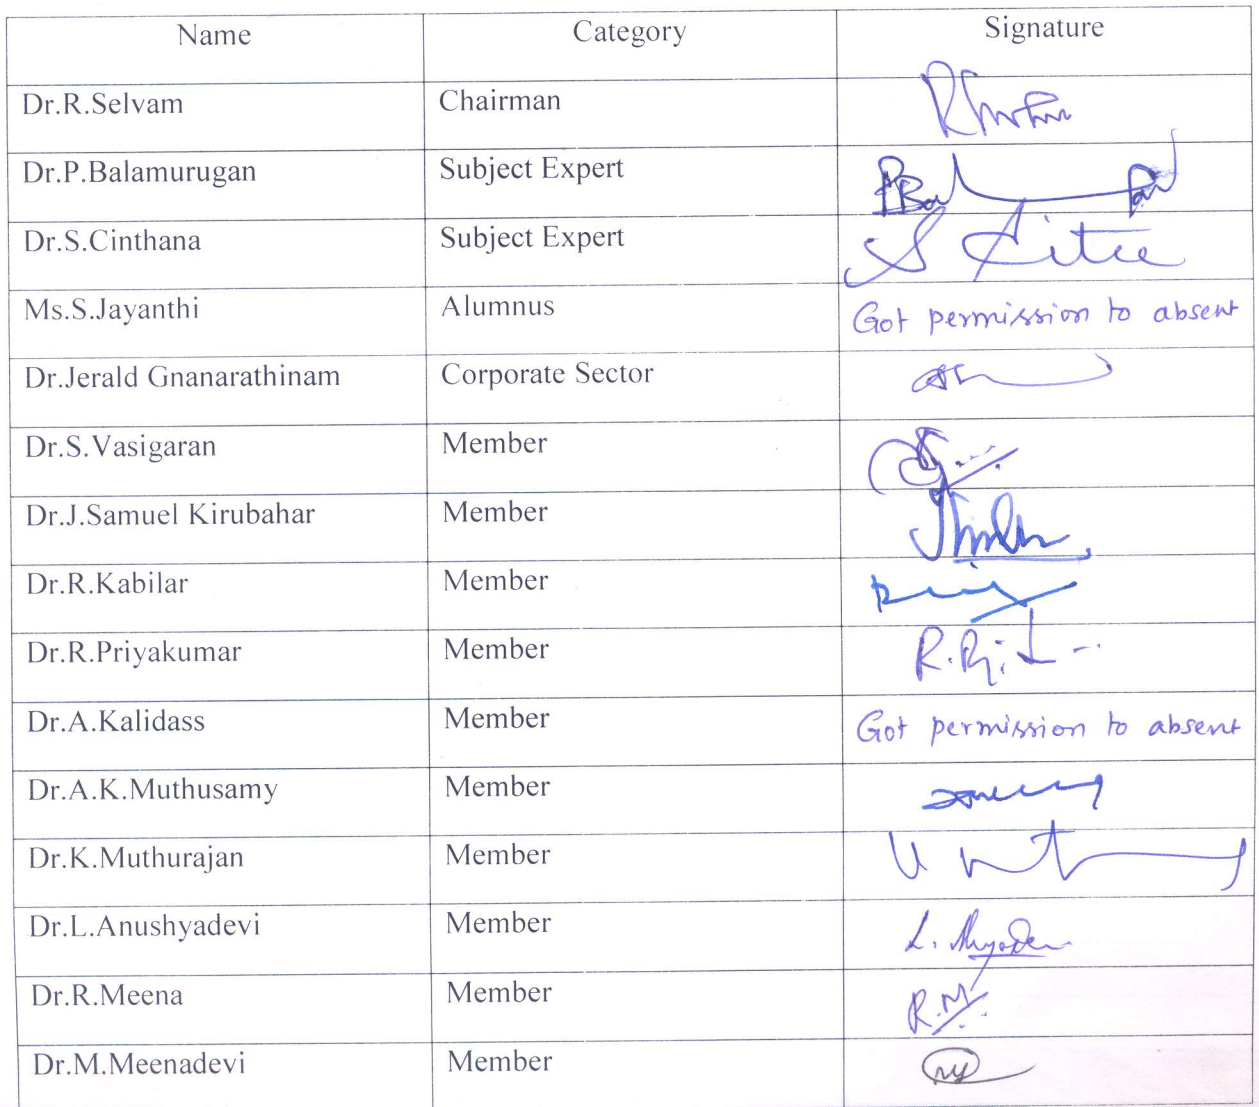 Name Category Signature
Dr.R.Selvam Chairman
Dr.P.Balamurugan Subject Expert
Dr.S.Cinthana Subject Expert
Ms.S.Jayanthi Alumnus Got permission to absent
Dr.Jerald Gnanarathinam Corporate Sector
Dr.S.Vasigaran Member
Dr.J.Samuel Kirubahar Member
Dr.R.Kabilar Member
Dr.R.Priyakumar Member
Dr.A.Kalidass Member Got permission to absent
Dr.A.K.Muthusamy Member
Dr.K.Muthurajan Member
Dr.L.Anushyadevi Member
Dr.R.Meena Member
Dr.M.Meenadevi Member